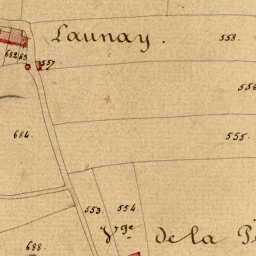 Launay. 558.
557
556
684. 555.
553 554
Vge de la
688.